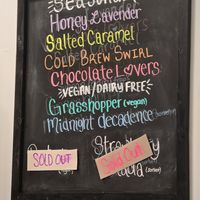 Seasonal
Honey Lavender
Salted Caramel
Cold Brew Swirl
Chocolate Lovers
Vegan/Dairy Free
Grasshopper (vegan)
Midnight decadence
Sold Out
Sold Out
(Sorbet)